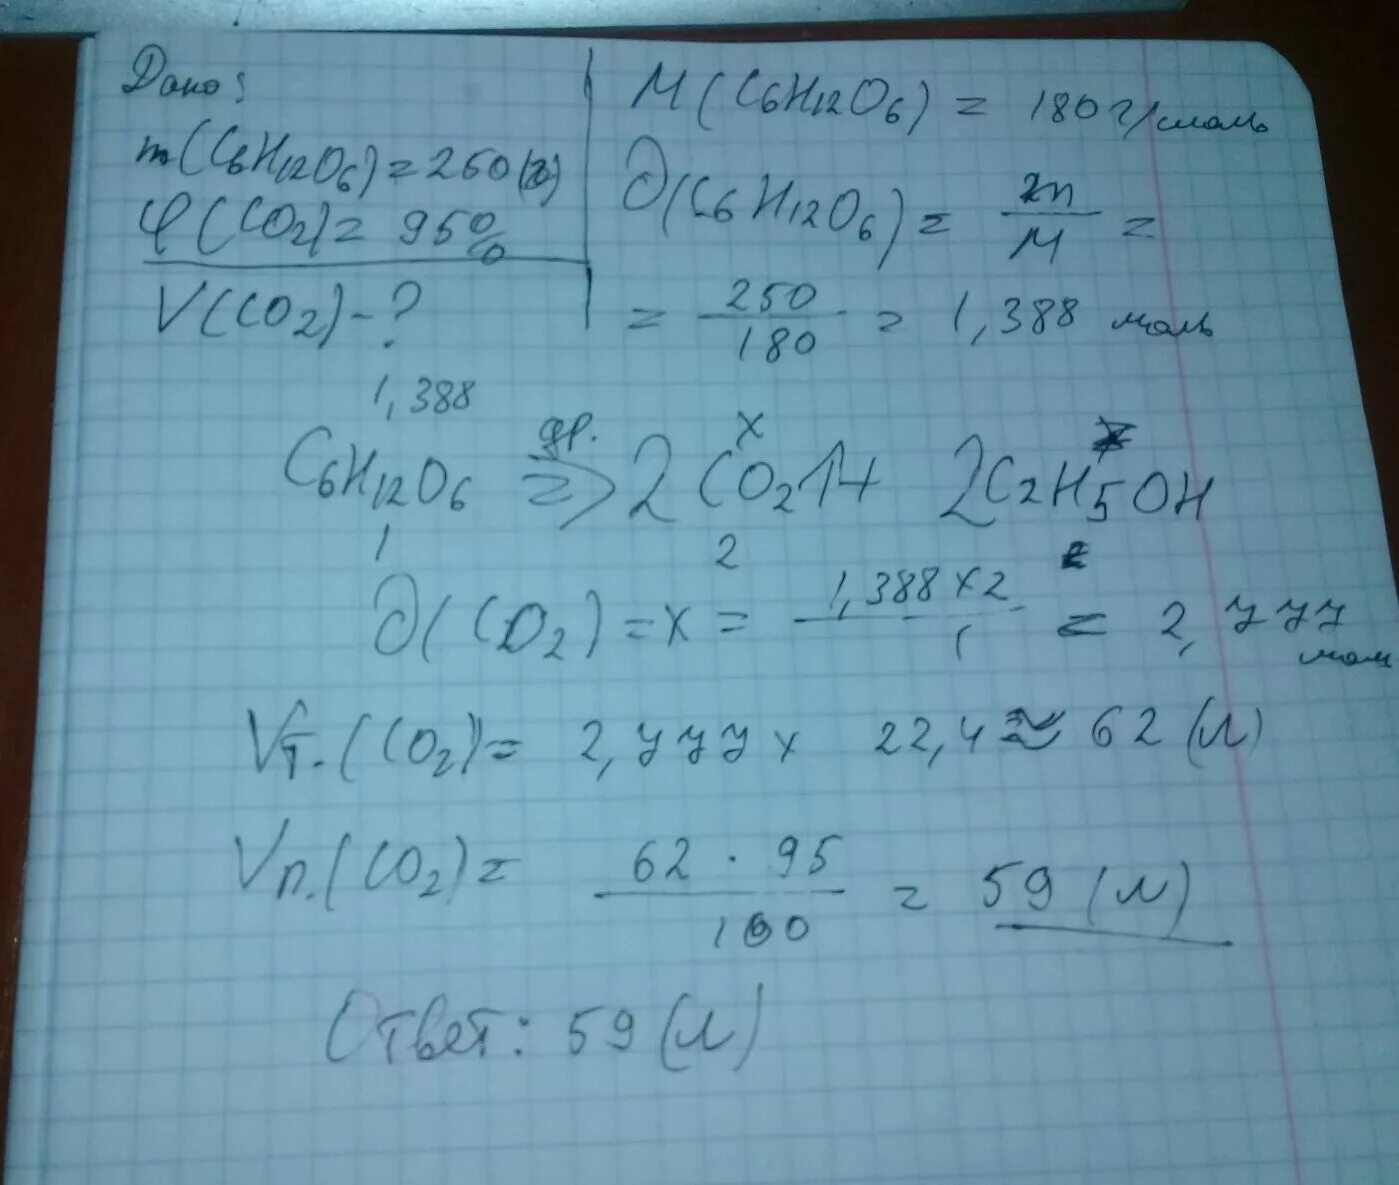 Дано:
m(C6H12O6) = 250(г)
φ(CO2) = 95%
V(CO2) - ?
M(C6H12O6) = 180 г/моль
∂(C6H12O6) = m/M =
= 250/180 = 1,388 моль
1,388 x
C6H12O6 => 2CO2↑ + 2C2H5OH
1 2
∂(CO2) = x = 1,388 x 2/1 = 2,777 моль
Vт.(CO2) = 2,777 x 22,4 ≈ 62 (л)
Vп.(CO2) = 62 · 95/100 = 59 (л)
Ответ: 59 (л)